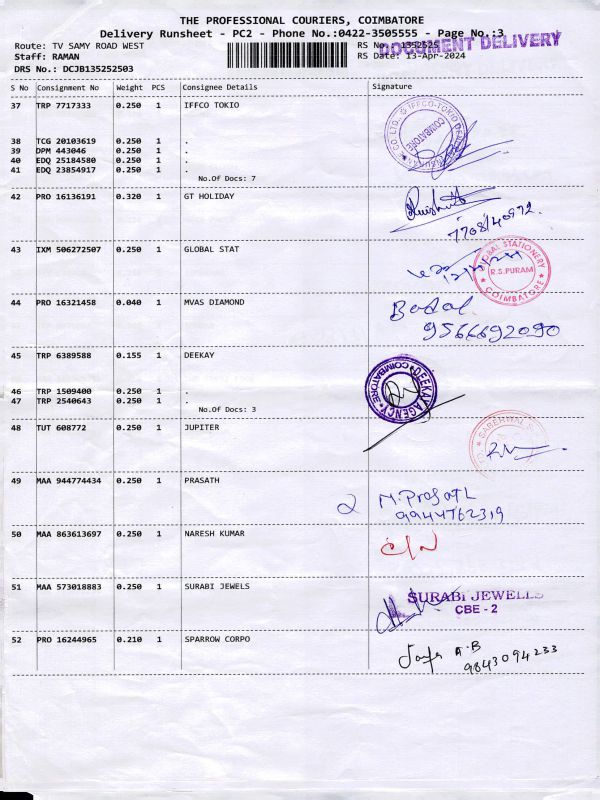 THE PROFESSIONAL COURIERS, COIMBATORE
Delivery Runsheet - PC2 - Phone No.:0422-3505555 - Page No.:3
Route: TV SAMY ROAD WEST RS No.: 1352525
DOCUMENT DELIVERY
Staff: RAMAN RS Date: 13-Apr-2024
DRS No.: DCJB135252503
S No Consignment No Weight PCS Consignee Details Signature
37 TRP 7717333 0.250 1 IFFCO TOKIO
COIMBATORE
38 TCG 20103619 0.250 1 .
39 DPM 443046 0.250 1 .
40 EDQ 25184580 0.250 1 .
41 EDQ 23854917 0.250 1 .
No.Of Docs: 7
42 PRO 16136191 0.320 1 GT HOLIDAY
7708140972.
43 IXM 506272507 0.250 1 GLOBAL STAT
GLOBAL STATIONERY
R.S.PURAM
COIMBATORE
44 PRO 16321458 0.040 1 MVAS DIAMOND
Badal
9566692090
45 TRP 6389588 0.155 1 DEEKAY
DEEKAY AGENCY
COIMBATORE
46 TRP 1509400 0.250 1 .
47 TRP 2540643 0.250 1 .
No.Of Docs: 3
48 TUT 608772 0.250 1 JUPITER
49 MAA 944774434 0.250 1 PRASATH
2 M.Prasath
9944762319
50 MAA 863613697 0.250 1 NARESH KUMAR
C/N
51 MAA 573018883 0.250 1 SURABI JEWELS
SURABI JEWELLS
CBE - 2
52 PRO 16244965 0.210 1 SPARROW CORPO
A.B
9843094233